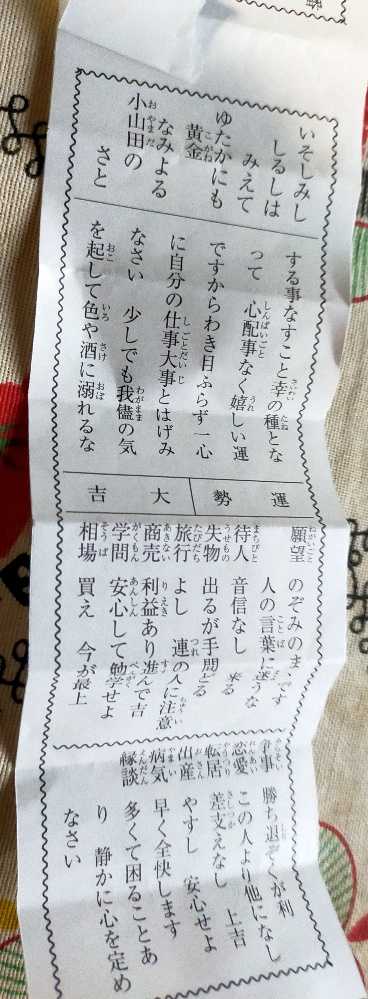 いそしみし
しるしは
みえて
ゆたかにも
黄金
なみよる
小山田の
さと
する事なすこと幸の種とな
って 心配事なく嬉しい運
ですからわき目ふらず一心
に自分の仕事大事とはげみ
なさい 少しでも我儘の気
を起して色や酒に溺れるな
運勢 大吉
願望 のぞみのま です
人の言葉に迷うな
待人 音信なし 来る
失物 出るが手間どる
旅行 よし 連の人に注意
商売 利益あり進んで吉
学問 安心して勉学せよ
相場 買え 今が最上
争事 勝ち退ぞくが利
恋愛 この人より他になし
転居 差支えなし 上吉
出産 やすし 安心せよ
病気 早く全快します
縁談 多くて困ることあ
り 静かに心を定め
なさい